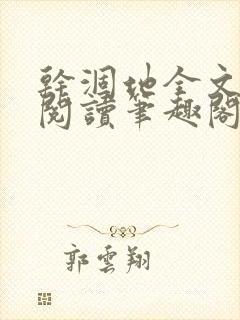 幹涸地全文
閱讀筆趣閣
郭雲翔